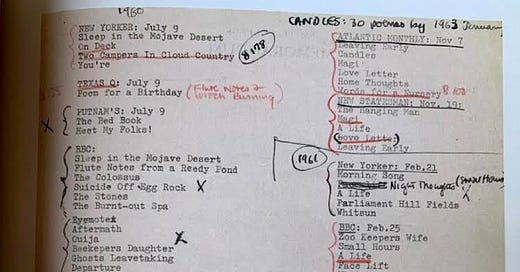 1960
NEW YORKER: July 9
Sleep in the Mojave Desert
On Deck
Two Campers In Cloud Country
You're
8178
TEXAS Q: July 9
Poem for a Birthday
(Flute Notes &
Witch Burning)
PUTNAM'S: July 9
X
The Bed Book
Meet My Folks!
BBC:
Sleep in the Mojave Desert
Flute Notes from a Reedy Pond
The Colossus
Suicide Off Egg Rock X
The Stones
The Burnt-out Spa
Aftermath
Ouija X
Beekepers Daughter
Ghosts Leavetaking
Departure
CANDLES: 30 poems by 1963
ATLANTIC MONTHLY: Nov 7
Leaving Early
Candles
Magi
Love Letter
Home Thoughts
Words for a Nursery
NEW STATESMAN: Nov. 19:
The Hanging Man
Magi
A Life
Love Letter
Leaving Early
1961
New Yorker: Feb.21
Morning Song
Night Thoughts (Small Hours)
A Life
Parliament Hill Fields
Whitsun
BBC: Feb.25
Zoo Keepers Wife
Small Hours
A Life
Face Lift